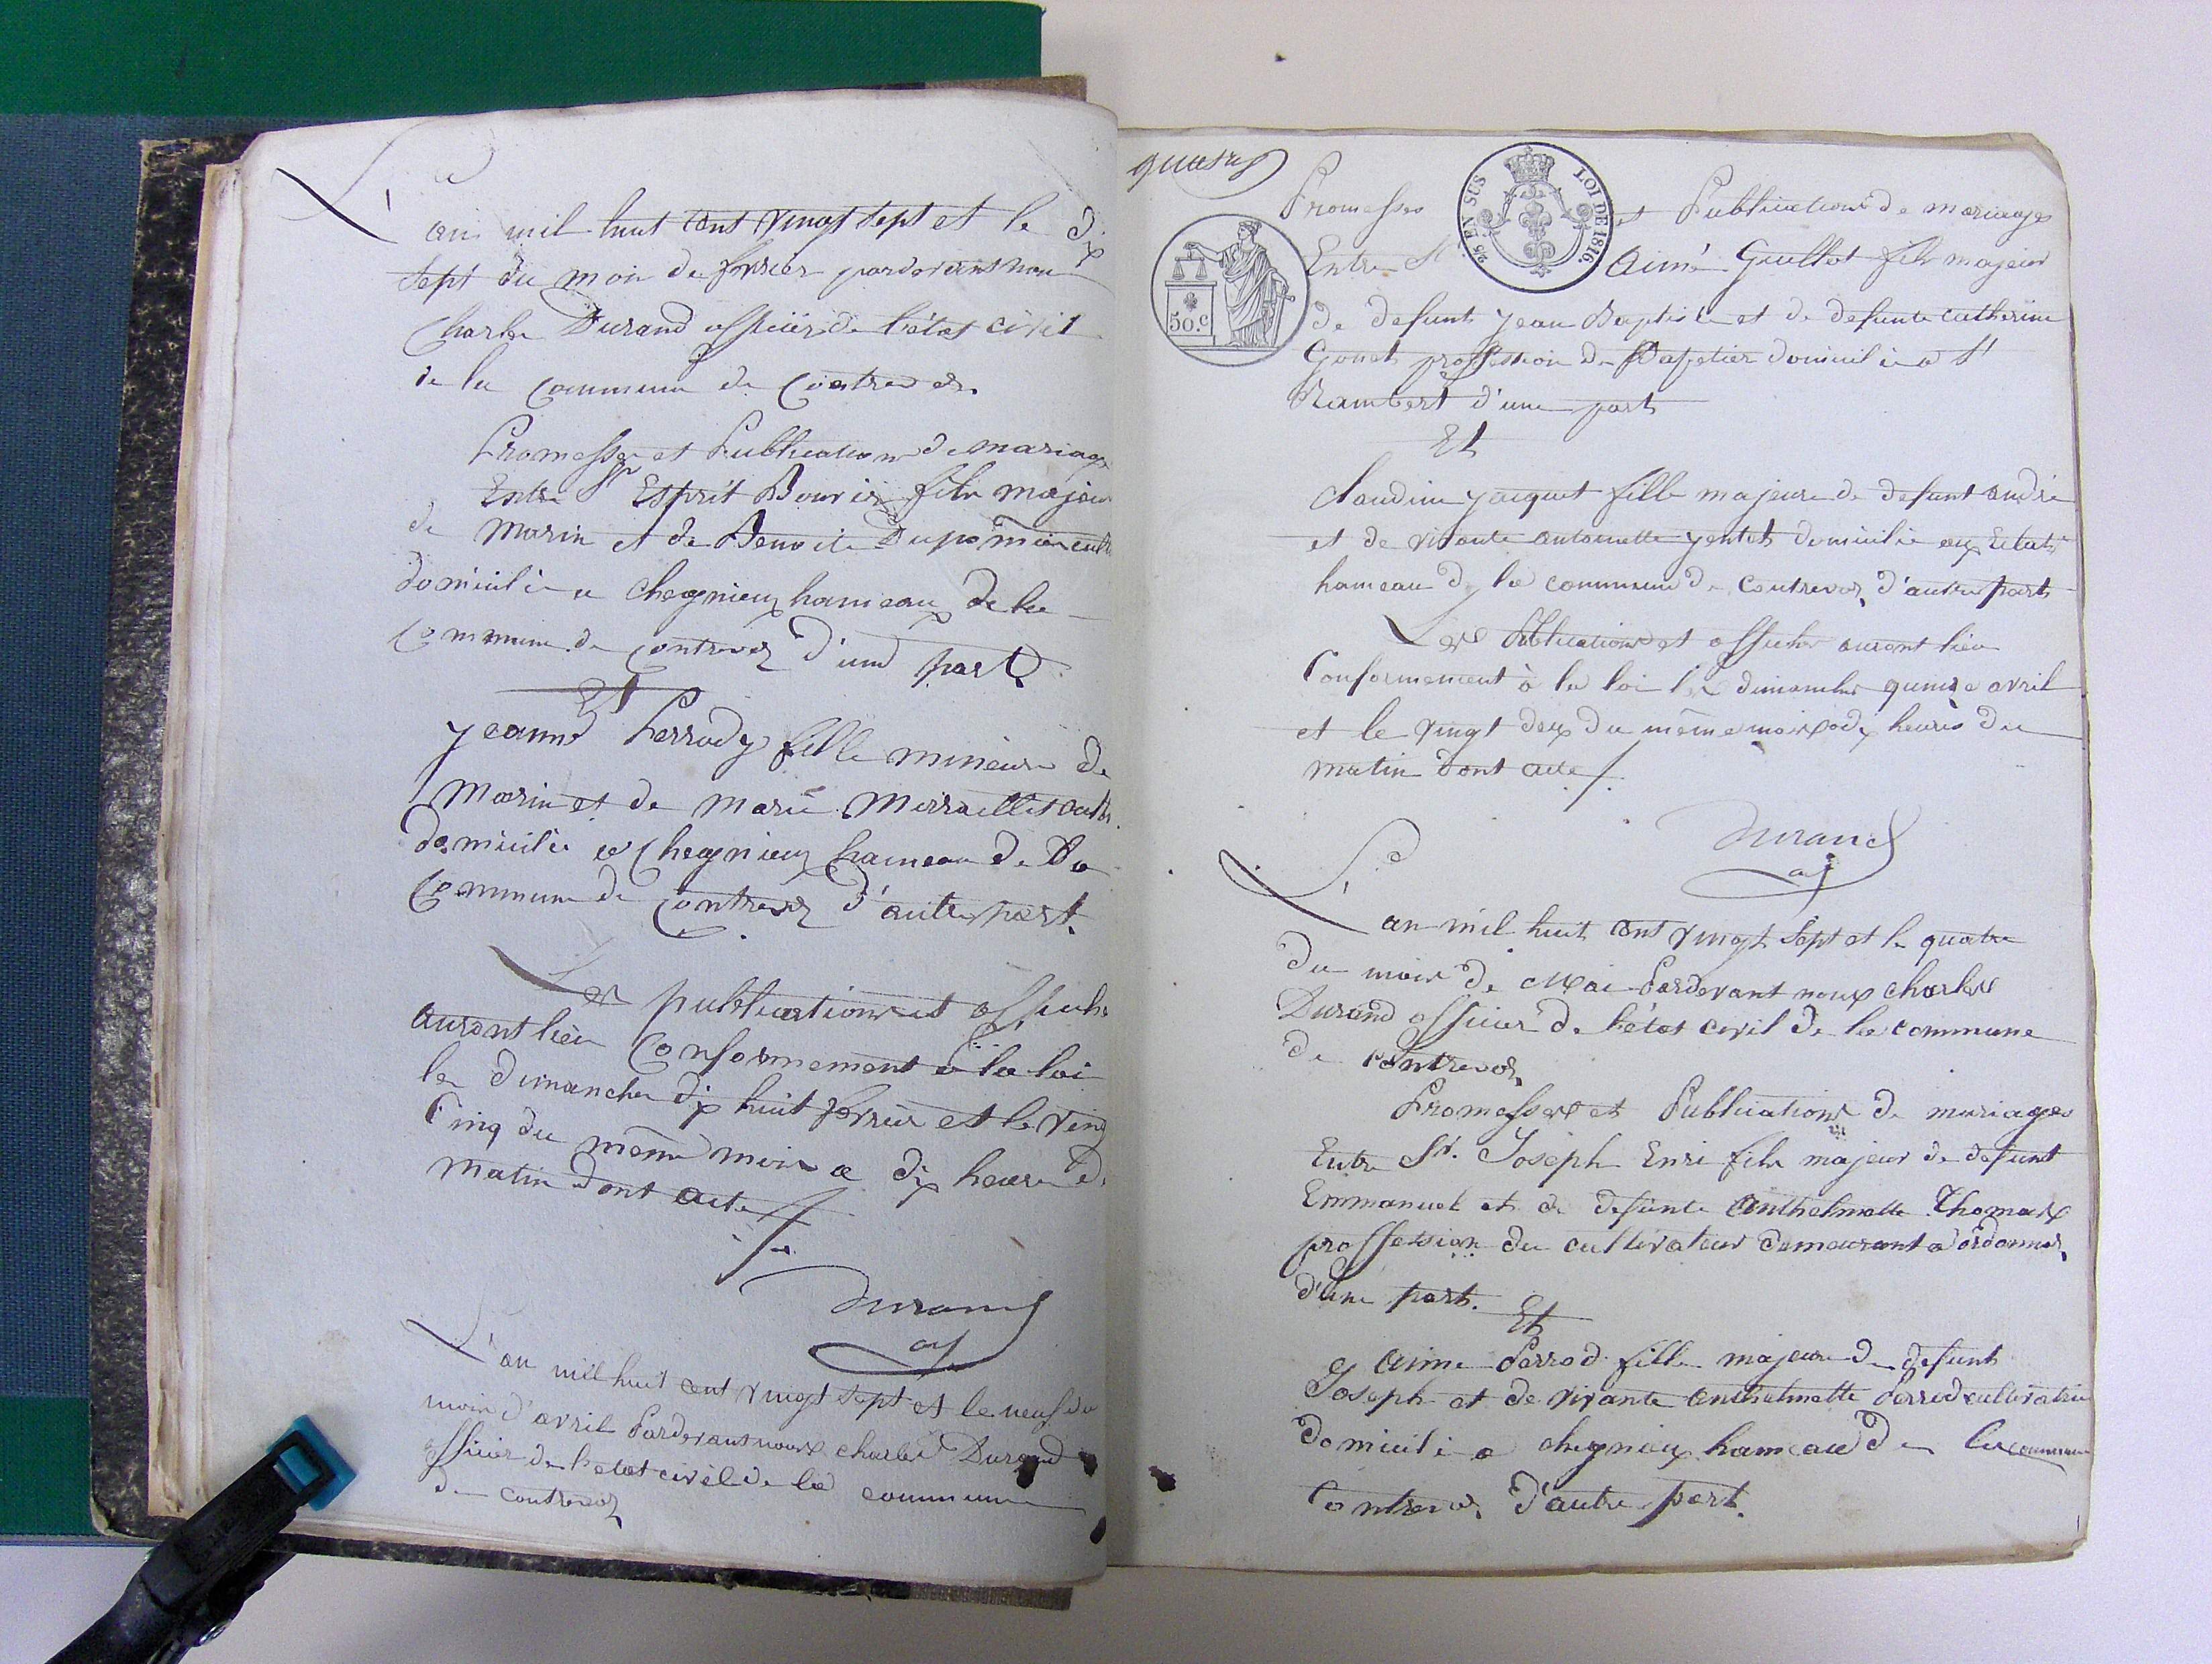 L'an mil huit cent vingt sept et le dix
sept du mois de fevrier pardevant nous
Charles Durand officier de l'état civil
de la commune de Contrevoz.
Promesses et Publications de mariage
Entre Sr Esprit Bouvier fils majeur
de Marin et de Benoite Dupomier cult
domicilié a Chegnieux hameaux de la
Commune de Contrevoz d'une part
Et
Jeanne Perrody fille mineure de
Marin et de Marie cult
domicilié a Chegnieux hameau de la
Commune de Contrevoz d'autre part.
Les publications et affiches
auront lieu Conformement a la loi
les dimanches dix huit fevrier et le ving
cinq du même mois a dix heures d
matin dont acte
Durand
L'an mil huit cent vingt sept et le neuf du
mois d'avril Pardevant nous Charles Durand
officier de l'etat civil de la commune
de Contrevoz
quatre
Promesses et Publications de mariages
25 EN SUS LOI DE 1816.
Entre Sr Aimé Guillot fils majeur
50.C
de defunt Jean Baptiste et de defunte Catherine
Gonet proffession de Papetier domicilié a St
Rambert d'une part
Et
Claudine Jacquet fille majeure de defunt andré
et de vivante antoinette domicilié aux
hameau de la commune de Contrevoz, d'autre part
Les Publications et affiches auront lieu
Conformement à la loi les dimanches quinze avril
et le vingt deux du même mois a dix heures du
matin dont acte
Durand
L'an mil huit cent vingt sept et le quatre
du mois de Mai Pardevant nous charles
Durand officier de l'état civil de la commune
de Contrevoz
Promesses et Publications de mariages
Entre Sr. Joseph Enri fils majeur de defunt
Emmanuel et de defunte anthelmette Thomas
proffession de cultivateur demeurant a ordonnaz,
d'une part.
Et
aime Perrod fille majeure de defunt
Joseph et de vivante anthelmette Perrod cultivatrice
domicilié a chegnieux hameau de la commune
Contrevoz, d'autre part.